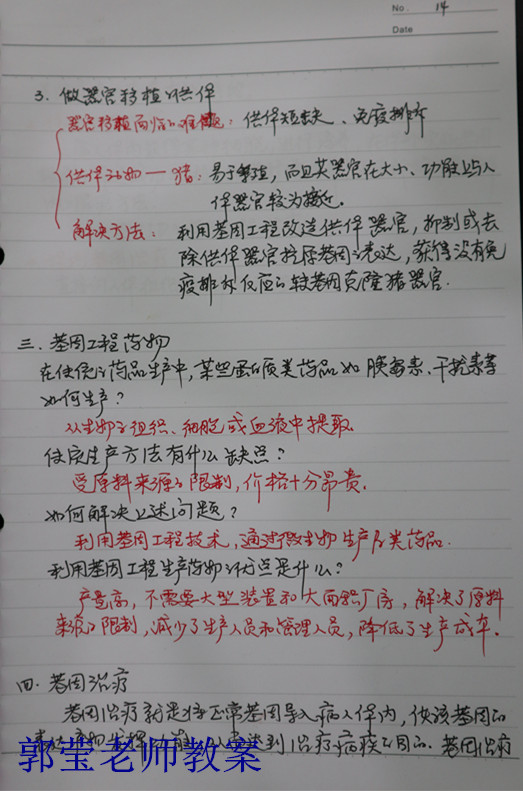 No. 14
Date
3. 做器官移植的供体
器官移植面临的难题：供体短缺、免疫排斥
供体动物—猪：易于繁殖，而且其器官在大小、功能上与人
体器官较为接近。
解决方法：利用基因工程改造供体器官，抑制或去
除供体器官抗原基因的表达，获得没有免
疫排斥反应的转基因克隆猪器官.
三. 基因工程药物
在传统的药品生产中，某些蛋白质类药品如胰岛素、干扰素等
如何生产？
从生物的组织、细胞或血液中提取.
传统生产方法有什么缺点？
受原料来源的限制，价格十分昂贵.
如何解决上述问题？
利用基因工程技术，通过微生物生产各类药品.
利用基因工程生产药物的优点是什么？
产量高，不需要大型装置和大面积厂房，解决了原料
来源的限制，减少了生产人员和管理人员，降低了生产成本.
四. 基因治疗
基因治疗就是将正常基因导入病人体内，使该基因的
表达产物发挥功能，从而达到治疗疾病的目的. 基因治疗
郭莹老师教案